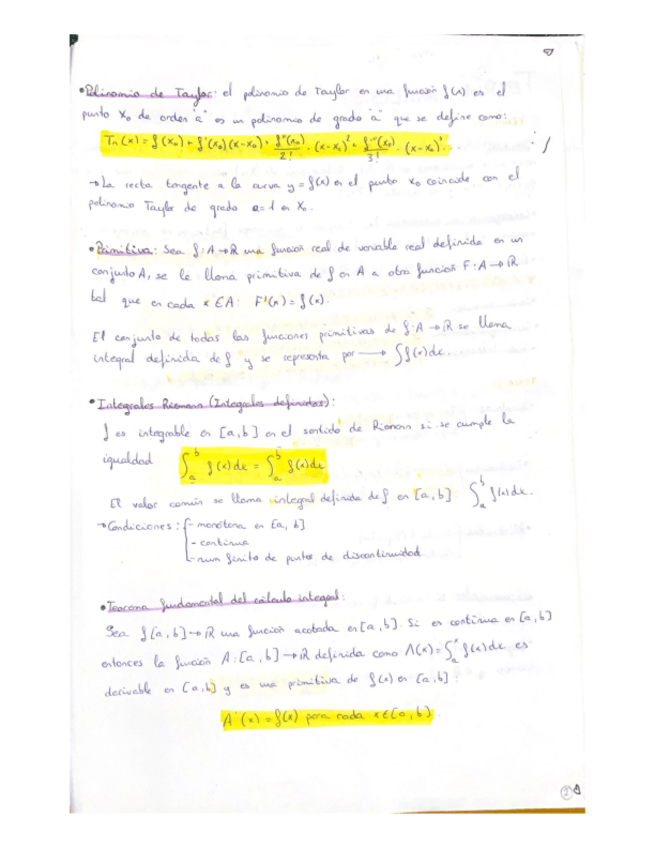 • Polinomio de Taylor: el polinomio de Taylor en una función f(x) es el
punto x₀ de orden "a" es un polinomio de grado "a" que se define como:
Tₙ(x) = f(x₀) + f'(x₀)(x-x₀) + f''(x₀)/2! · (x-x₀)² + f'''(x₀)/3! · (x-x₀)³...
→ La recta tangente a la curva y = f(x) en el punto x₀ coincide con el
polinomio Taylor de grado a=1 en x₀.
• Primitiva: Sea f: A → ℝ una función real de variable real definida en un
conjunto A, se le llama primitiva de f en A a otra función F: A → ℝ
tal que en cada x ∈ A: F'(x) = f(x).
El conjunto de todas las funciones primitivas de f: A → ℝ se llama
integral definida de f y se representa por → ∫ f(x) dx.
• Integrales Riemann (Integrales definidas):
f es integrable en [a,b] en el sentido de Riemann si se cumple la
igualdad ∫ₐᵇ f(x) dx = ∫ₐᵇ f(x) dx
El valor común se llama integral definida de f en [a,b] ∫ₐᵇ f(x) dx.
→ Condiciones: { - monótona en [a,b]
- continua
- num finito de puntos de discontinuidad
• Teorema fundamental del cálculo integral:
Sea f [a,b] → ℝ una función acotada en [a,b]. Si es continua en [a,b]
entonces la función A: [a,b] → ℝ definida como A(x) = ∫ₐˣ f(x) dx es
derivable en [a,b] y es una primitiva de f(x) en [a,b]:
A'(x) = f(x) para cada x ∈ [a,b]
2